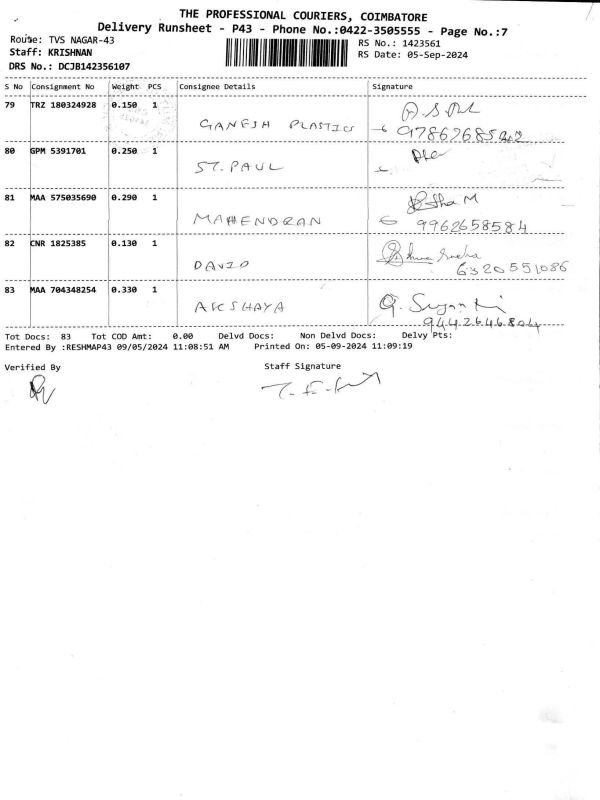 THE PROFESSIONAL COURIERS, COIMBATORE
Delivery Runsheet - P43 - Phone No.:0422-3505555 - Page No.:7
Route: TVS NAGAR-43
RS No.: 1423561
Staff: KRISHNAN
RS Date: 05-Sep-2024
DRS No.: DCJB142356107
S No Consignment No Weight PCS Consignee Details Signature
79 TRZ 180324928 0.150 1
GANESH PLASTICS
80 GPM 5391701 0.250 1
ST. PAUL
81 MAA 575035690 0.290 1
MAHENDRAN 9962658584
82 CNR 1825385 0.130 1
DAVID 6320551086
83 MAA 704348254 0.330 1
AKSHAYA 9442646804
Tot Docs: 83 Tot COD Amt: 0.00 Delvd Docs: Non Delvd Docs: Delvy Pts:
Entered By :RESHMAP43 09/05/2024 11:08:51 AM Printed On: 05-09-2024 11:09:19
Verified By Staff Signature